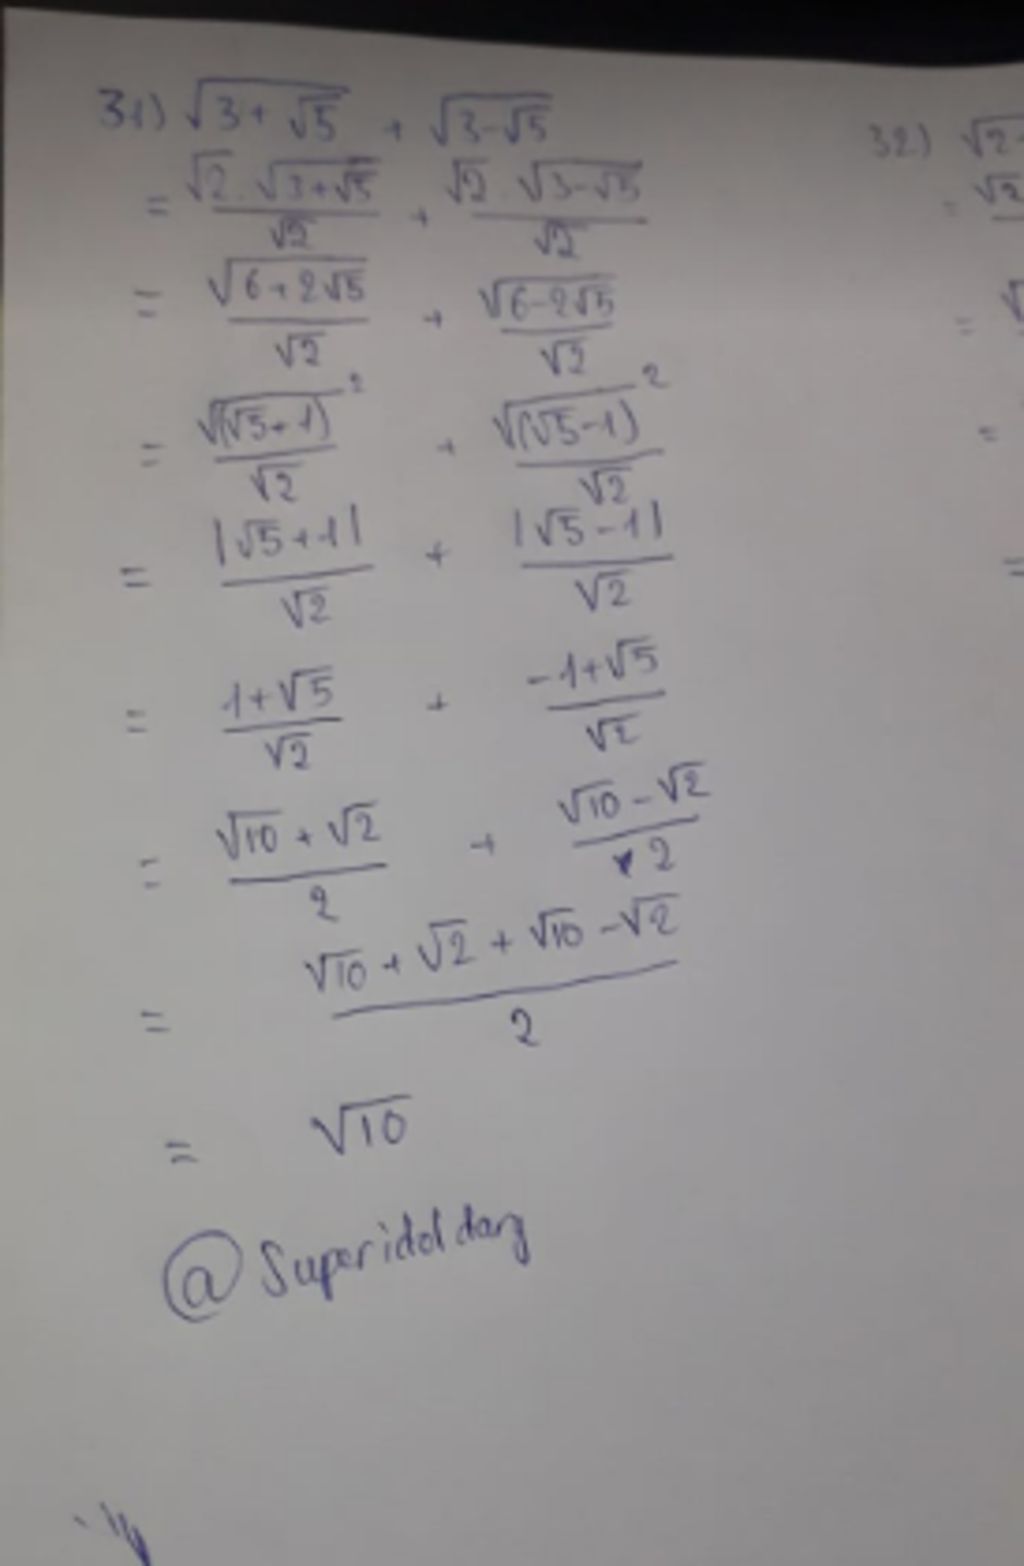 31) √(3+√5) + √(3-√5)
= (√2 . √(3+√5))/√2 + (√2 . √(3-√5))/√2
= √(6+2√5)/√2 + √(6-2√5)/√2
= √((√5+1)²)/√2 + √((√5-1)²)/√2
= |√5+1|/√2 + |√5-1|/√2
= (1+√5)/√2 + (-1+√5)/√2
= (√10+√2)/2 + (√10-√2)/2
= (√10+√2+√10-√2)/2
= √10
@Superidoldarz
32) √2
= √2
=
=
=